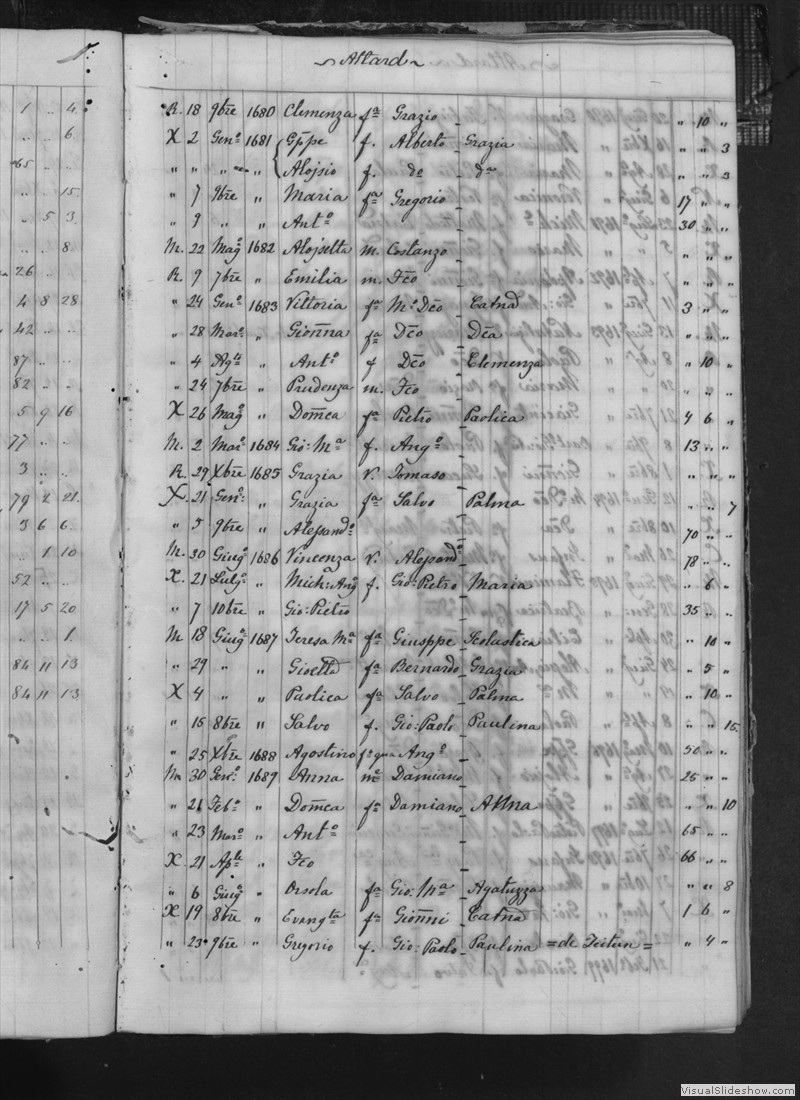 Attard
1 .. 4
.. .. 6
65 .. ..
.. .. 15
.. 5 3
.. .. 8
26 .. ..
4 8 28
42 .. ..
87 .. ..
82 .. ..
5 9 16
77 .. ..
3 .. ..
79 2 21
3 6 6
.. 1 10
52 .. ..
17 5 20
.. .. 1
84 11 13
84 11 13
R. 18 9bre 1680 Clemenza fa Grazio " 10 "
X 2 Geno 1681 Gppe f. Alberto Grazia " " 3
" " " " Alojsio f. do da " " 3
" 7 9bre " Maria fa Gregorio 17 " "
" 9 " " Anto 30 " "
M. 22 Mago 1682 Alojsetta m. Costanzo
R. 9 7bre " Emilia m. Fco
" 24 Geno 1683 Vittoria fa Mo Dco Catnā 3 " "
" 28 Maro " Gionna fa Dco Dca
" 4 Agto " Anto f Dco Clemenza " 10 "
" 24 7bre " Prudenza m. Fco
X 26 Mago " Domca fa Pietro Paolica 4 6 "
M. 2 Maro 1684 Gio: Ma f. Ango 13 " "
R. 29 Xbre 1685 Grazia v. Tomaso
X. 21 Geno: " Grazia fa Salvo Palma " " 7
" 5 9bre " Alessando 70 " "
M. 30 Giugo 1686 Vincenza v. Alessando 78 " "
X. 21 Lulgo " Mich: Ango f. Gio: Pietro Maria " 6 "
" 7 10bre " Gio: Pietro 35 " "
M 18 Giugo 1687 Teresa Ma fa Giusppe Scolastica " 10 "
" 29 " " Gioetta fa Bernardo Grazia " 5 "
X 4 " " Paolica fa Salvo Palma " 10 "
" 15 8bre " Salvo f. Gio: Paolo Paulina " " 15
" 25 Xbre 1688 Agostino f: qm Ango 50 " "
M 30 Geno: 1689 Anna ma Damiano 25 " "
" 21 Febo " Domca fa Damiano Anna " " 10
" 23 Maro " Anto 65 " "
X 21 Aple " Fco 66 " "
" 6 Giugo " Orsola fa Gio: Ma Agatuzza " " 8
X 19 8bre " Evangta fa Gionni Catnā 1 6 "
" 23 9bre " Gregorio f. Gio: Paolo Paulina =de Zeitun= " 4 "
VisualSlideshow.com